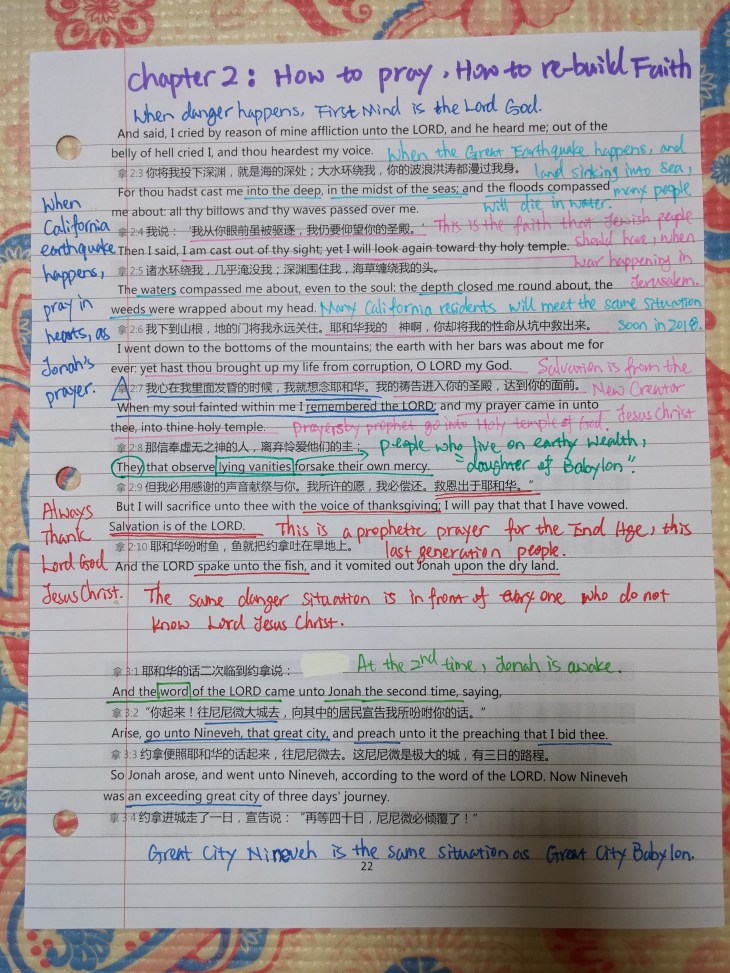 chapter 2: How to pray, How to re-build Faith
When danger happens, First Mind is the Lord God.
And said, I cried by reason of mine affliction unto the LORD, and he heard me; out of the
belly of hell cried I, and thou heardest my voice.
When the Great Earthquake happens, and
拿 2:3 你将我投下深渊，就是海的深处；大水环绕我，你的波浪洪涛都漫过我身。
land sinking into sea,
For thou hadst cast me into the deep, in the midst of the seas; and the floods compassed
many people
me about: all thy billows and thy waves passed over me.
will die in water.
When
California
earthquake
happens,
pray in
hearts, as
Jonah's
prayer.
拿 2:4 我说：‘我从你眼前虽被驱逐，我仍要仰望你的圣殿。’
This is the faith that Jewish people
Then I said, I am cast out of thy sight; yet I will look again toward thy holy temple.
should have, when
拿 2:5 诸水环绕我，几乎淹没我；深渊围住我，海草缠绕我的头。
war happening in
The waters compassed me about, even to the soul: the depth closed me round about, the
Jerusalem.
weeds were wrapped about my head.
Many California residents will meet the same situation
拿 2:6 我下到山根，地的门将我永远关住。耶和华我的 神啊，你却将我的性命从坑中救出来。
soon in 2018.
I went down to the bottoms of the mountains; the earth with her bars was about me for
ever: yet hast thou brought up my life from corruption, O LORD my God.
Salvation is from the
拿 2:7 我心在我里面发昏的时候，我就想念耶和华。我的祷告进入你的圣殿，达到你的面前。
New Creator
When my soul fainted within me I remembered the LORD: and my prayer came in unto
Jesus Christ
thee, into thine holy temple.
prayers by prophet go into Holy temple of God.
拿 2:8 那信奉虚无之神的人，离弃怜爱他们的主；
people who live on earthy wealth,
They that observe lying vanities forsake their own mercy.
"daughter of Babylon".
拿 2:9 但我必用感谢的声音献祭与你。我所许的愿，我必偿还。救恩出于耶和华。”
But I will sacrifice unto thee with the voice of thanksgiving; I will pay that that I have vowed.
Salvation is of the LORD.
This is a prophetic prayer for the End Age, this
拿 2:10 耶和华吩咐鱼，鱼就把约拿吐在旱地上。
last generation people.
And the LORD spake unto the fish, and it vomited out Jonah upon the dry land.
Always
Thank
Lord God
Jesus Christ.
The same danger situation is in front of every one who do not
know Lord Jesus Christ.
拿 3:1 耶和华的话二次临到约拿说：
At the 2nd time, Jonah is awake.
And the word of the LORD came unto Jonah the second time, saying,
拿 3:2 “你起来！往尼尼微大城去，向其中的居民宣告我所吩咐你的话。”
Arise, go unto Nineveh, that great city, and preach unto it the preaching that I bid thee.
拿 3:3 约拿便照耶和华的话起来，往尼尼微去。这尼尼微是极大的城，有三日的路程。
So Jonah arose, and went unto Nineveh, according to the word of the LORD. Now Nineveh
was an exceeding great city of three days' journey.
拿 3:4 约拿进城走了一日，宣告说：“再等四十日，尼尼微必倾覆了！”
Great City Nineveh is the same situation as Great City Babylon.
22